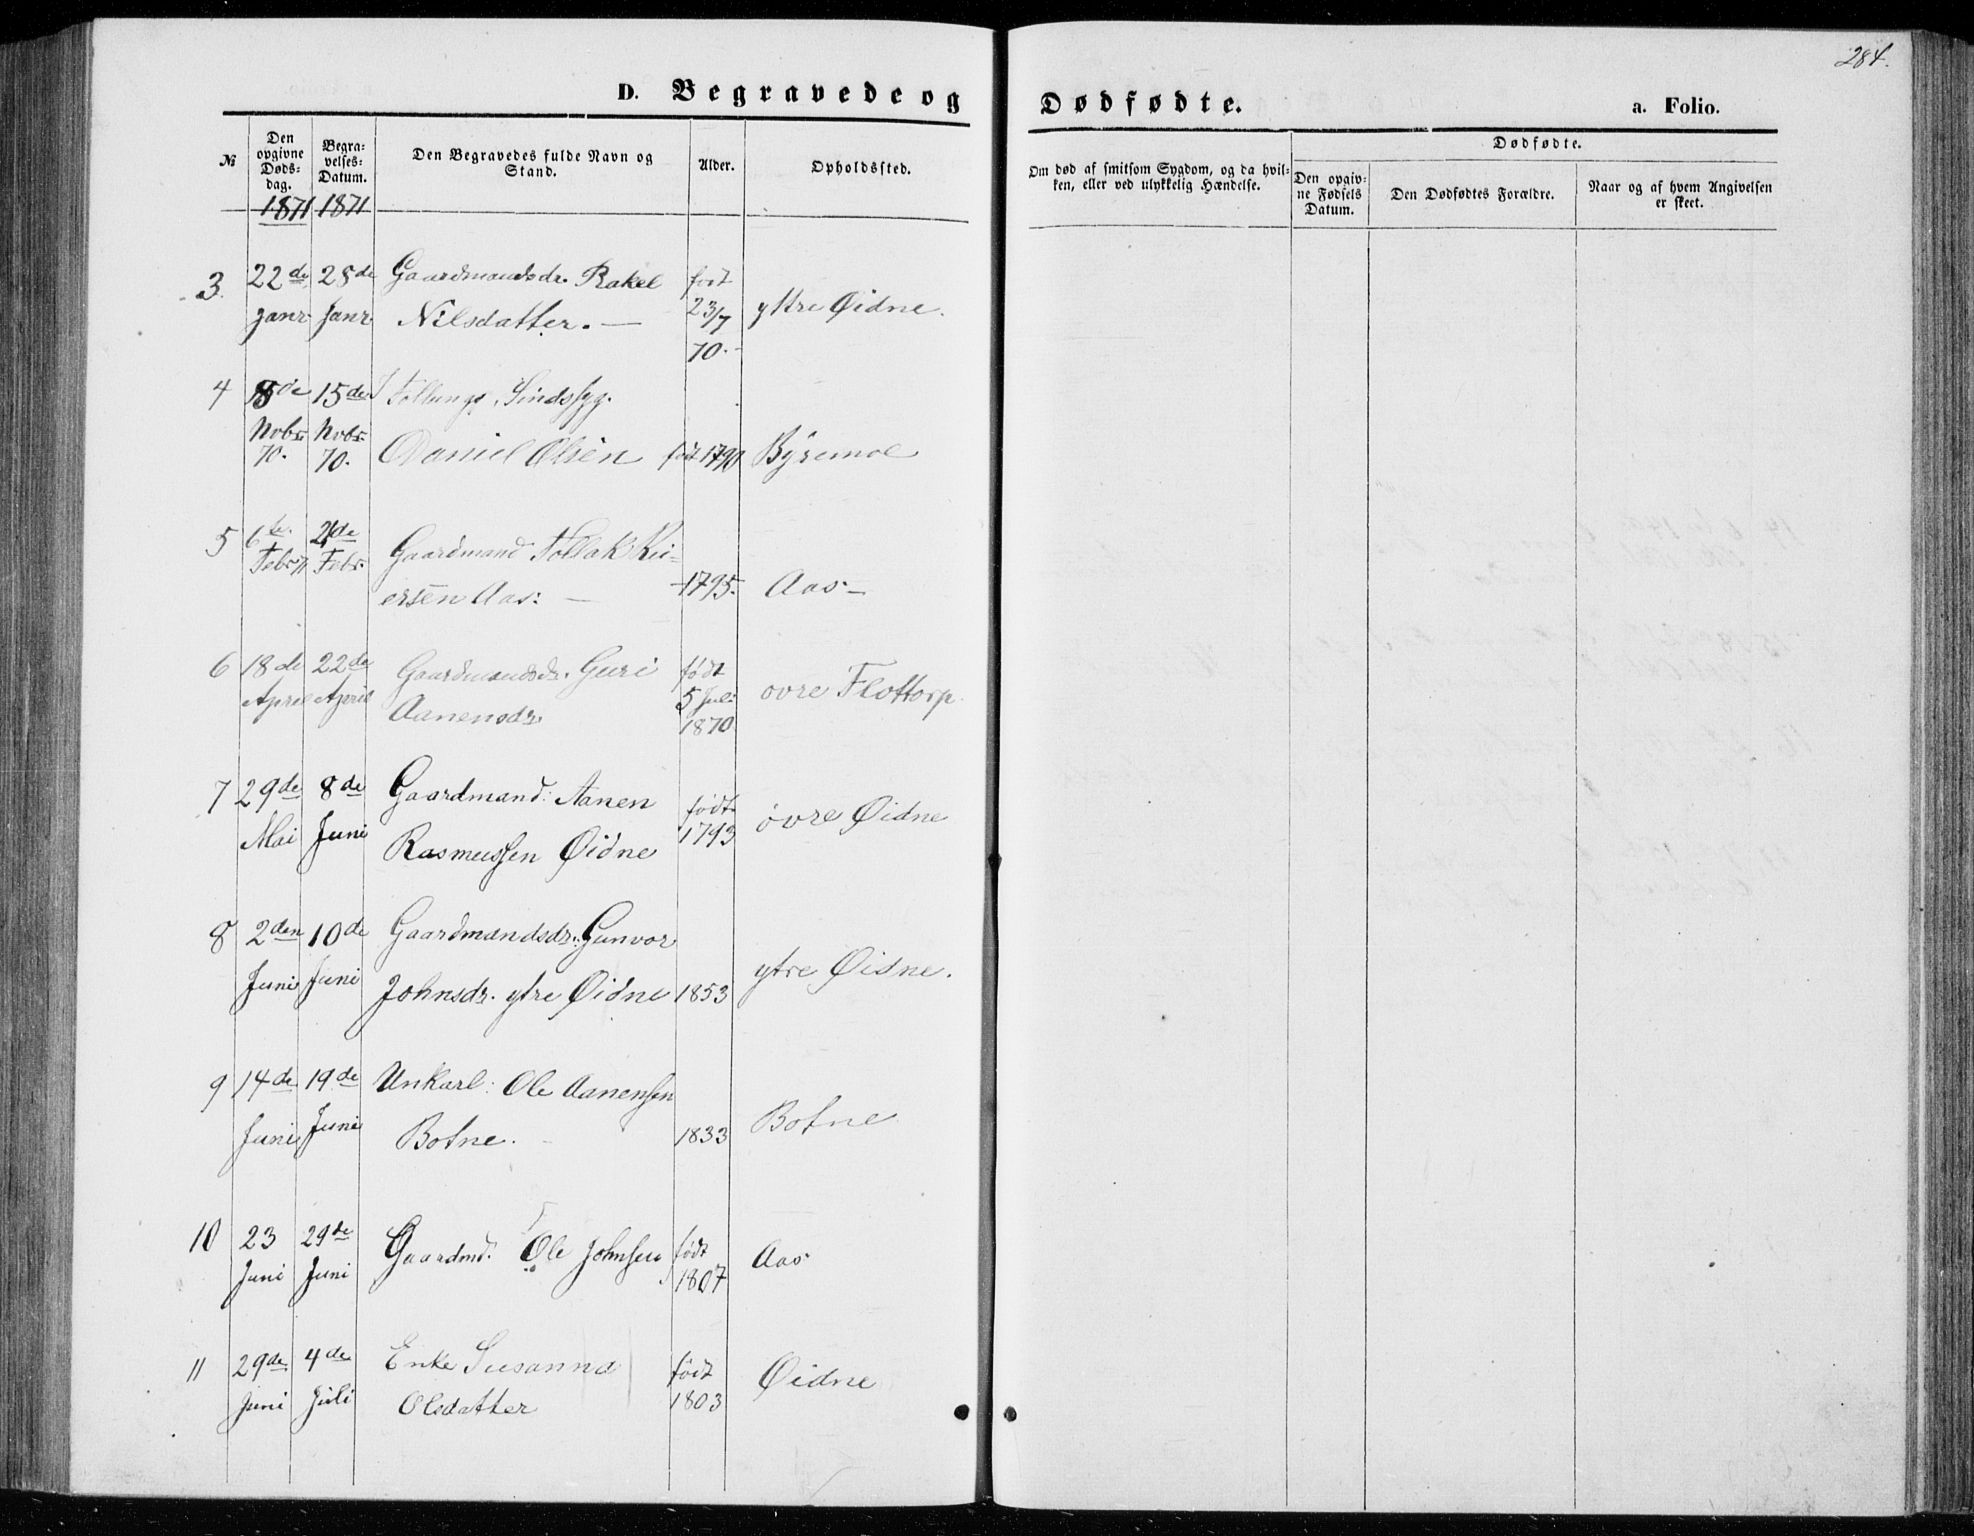 284.
D. Begravede og Dødfødte.
a. Folio.
№
Den opgivne Døds-dag.
Begra-velses-Datum.
Den Begravedes fulde Navn og Stand.
Alder.
Opholdssted.
Om død af smitsom Sygdom, og da hvil-ken, eller ved ulykkelig Hændelse.
Dødfødte.
Den opgiv-ne Fødsels Datum.
Den Dødfødtes Forældre.
Naar og af hvem Angivelsen er skeet.
1871 1871
3 22de 28de Gaardmandsdr. Rakel født
Janr Janr Nilsdatter. — 23/7 yttre Øidne.
70.
4 15de Sindssyg.
Nobr. Nobr.
70. 70. Daniel Olsen født 1790 Byremoe
5 6te
Febr 71 Febr Gaardmand Tollak Rei-
ersen Aas: — 1795. Aas —
6 18de 22de Gaardmandsdr. Guri født
April April Aanensdr. 5 Juli ovre Flottorp.
1870
7 29de 8de Gaardmand: Aanen født
Mai Juni Rasmussen Øidne 1793 øvre Øidne
8 2den 10de Gaardmandsdr: Gunvor
Juni Juni Johnsdr. ytre Øidne 1853 ytre Øidne.
9 14de 19de Unkarl: Ole Aanensen
Juni Juni Botne. 1833 Botne
10 23 29de Gaardmd. Ole Johnsen født
Juni Juni 1807 Aas
11 29de 4de Enke Susanna født
Juni Juli Olsdatter 1803 Øidne